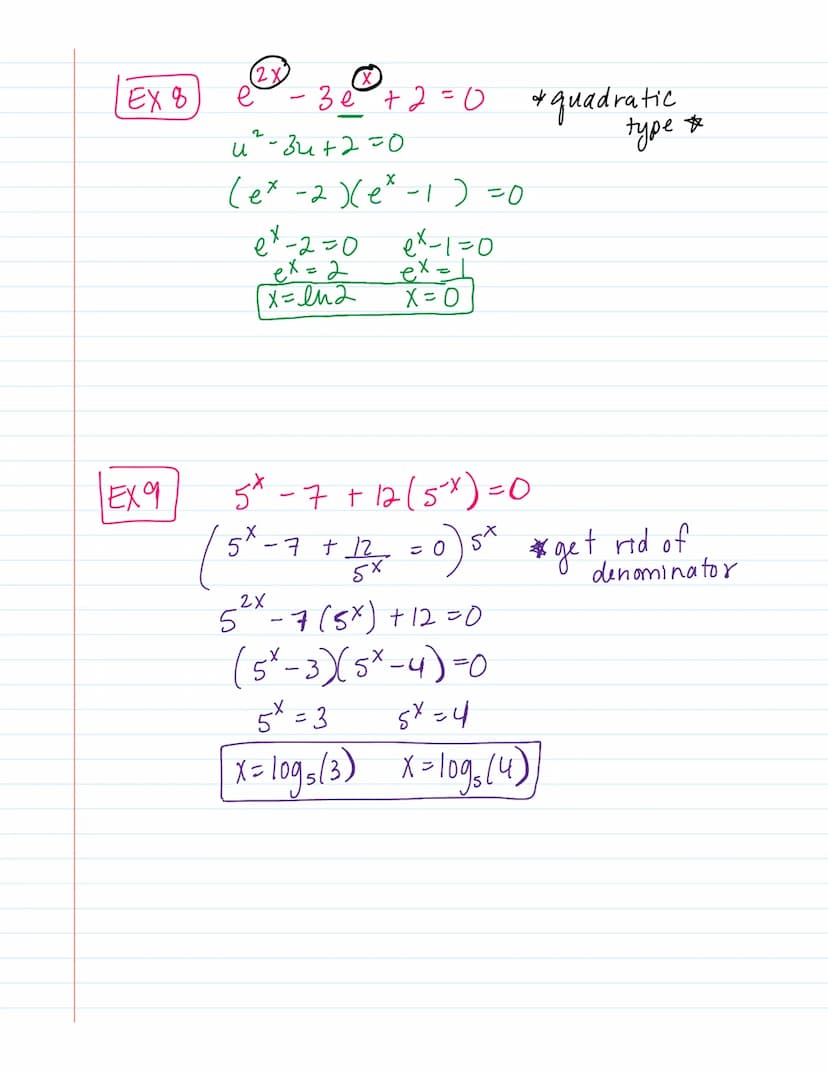 EX 8 e^{2x} - 3e^{x} + 2 = 0 *quadratic type*
u² - 3u + 2 = 0
(e^x - 2)(e^x - 1) = 0
e^x - 2 = 0 e^x - 1 = 0
e^x = 2 e^x = 1
x = ln2 x = 0
EX 9 5^x - 7 + 12(5^{-x}) = 0
(5^x - 7 + 12/5^x = 0)5^x *get rid of denominator
5^{2x} - 7(5^x) + 12 = 0
(5^x - 3)(5^x - 4) = 0
5^x = 3 5^x = 4
x = log₅(3) x = log₅(4)